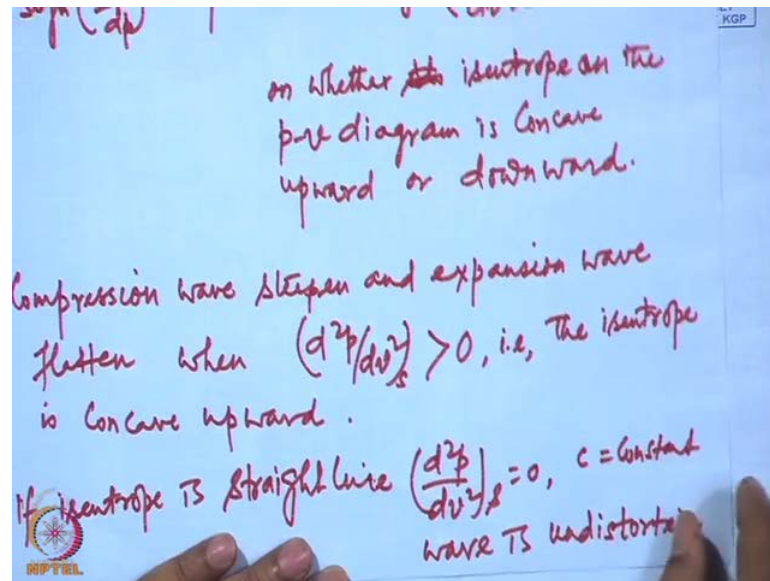 KGP
sign (
dp)
on whether isentrope on the
p-v diagram is Concave
upward or downward.
Compression wave steepen and expansion wave
flatten when (d²p/dv²)s > 0, i.e, The isentrope
is Concave upward.
If isentrope is straight line (d²p/dv²)s = 0, c = Constant
wave is undistorte
NPTEL